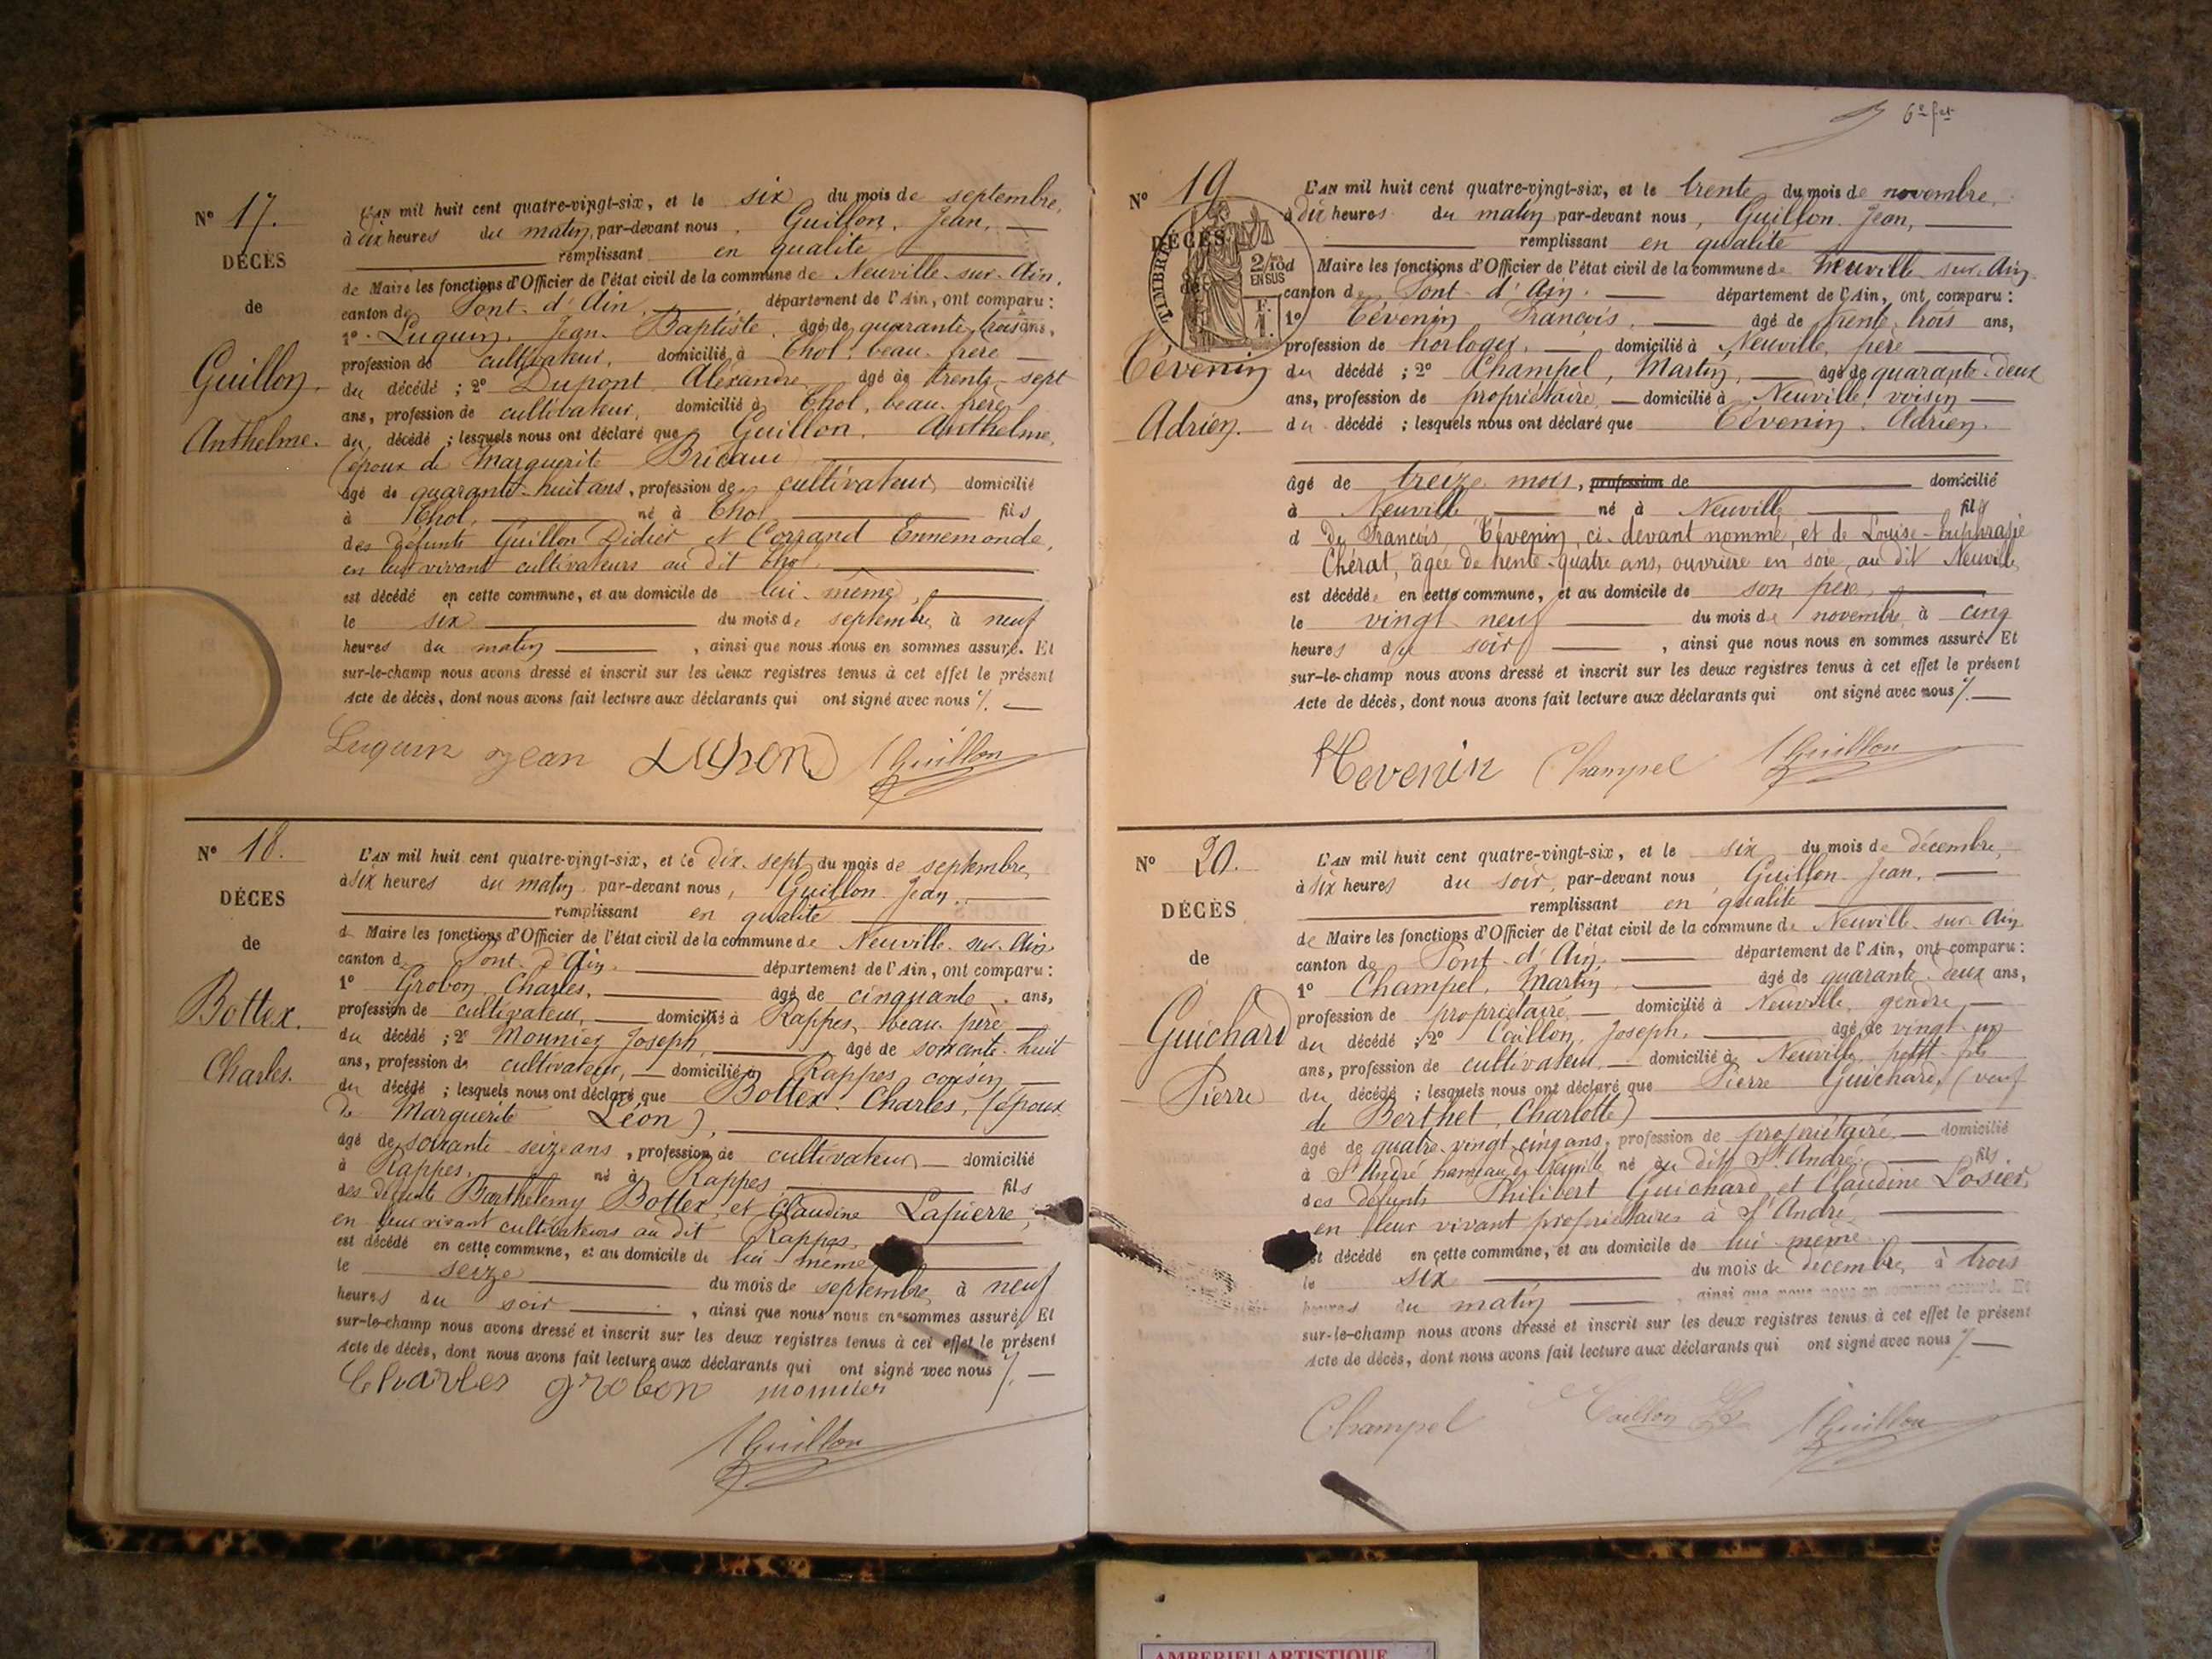 Nº 17.
DÉCÈS
de
Guillon,
Anthelme.
L'AN mil huit cent quatre-vingt-six, et le six du mois de septembre,
à dix heures du matin, par-devant nous, Guillon, Jean,
remplissant en qualité
de Maire les fonctions d'Officier de l'état civil de la commune de Neuville-sur-Ain,
canton de Pont-d'Ain, département de l'Ain, ont comparu :
1º Luquin, Jean-Baptiste, âgé de quarante-trois ans,
profession de cultivateur, domicilié à Thol, beau-frère
du décédé ; 2º Dupont Alexandre âgé de trente-sept
ans, profession de cultivateur, domicilié à Thol, beau-frère
du décédé ; lesquels nous ont déclaré que Guillon, Anthelme,
(époux de Marguerite
âgé de quarante-huit ans, profession de cultivateur domicilié
à Thol, né à Thol fils
des défunts Guillon Didier et Corrand Ennemonde,
en leur vivant cultivateurs au dit Thol,
est décédé en cette commune, et au domicile de lui-même,
le six du mois de septembre à neuf
heures du matin , ainsi que nous nous en sommes assuré. Et
sur-le-champ nous avons dressé et inscrit sur les deux registres tenus à cet effet le présent
Acte de décès, dont nous avons fait lecture aux déclarants qui ont signé avec nous %.
Luquin Jean Dupon Guillon
Nº 18.
DÉCES
de
Bottex.
Charles.
L'AN mil huit cent quatre-vingt-six, et le dix-sept du mois de septembre,
à six heures du matin, par-devant nous, Guillon Jean,
remplissant en qualité
de Maire les fonctions d'Officier de l'état civil de la commune de Neuville-sur-Ain,
canton de Pont-d'Ain, département de l'Ain, ont comparu :
1º Grobon, Charles, âgé de cinquante ans,
profession de cultivateur, domicilié à Rappes, beau-père
du décédé ; 2º Mounier Joseph, âgé de soixante-huit
ans, profession de cultivateur, domicilié à Rappes, cousin
du décédé ; lesquels nous ont déclaré que Bottex Charles, (époux
de Marguerite Léon),
âgé de soixante-seize ans, profession de cultivateur domicilié
à Rappes, né à Rappes fils
des défunts Barthelemy Bottex, et Claudine Lapierre,
en leur vivant cultivateurs au dit Rappes,
est décédé en cette commune, et au domicile de lui-même
le seize du mois de septembre à neuf
heures du soir , ainsi que nous nous en sommes assuré. Et
sur-le-champ nous avons dressé et inscrit sur les deux registres tenus à cet effet le présent
Acte de décès, dont nous avons fait lecture aux déclarants qui ont signé avec nous %.
Charles grobon mounier
Guillon
6e f et
Nº 19
DÉCÈS
de
TIMBRE
2/10d
EN SUS
F.
1.
Tévenin
Adrien.
L'AN mil huit cent quatre-vingt-six, et le trente du mois de novembre,
à dix heures du matin, par-devant nous, Guillon Jean,
remplissant en qualité
Maire les fonctions d'Officier de l'état civil de la commune de Neuville-sur-Ain
canton de Pont-d'Ain, département de l'Ain, ont comparu :
1º Tévenin François, âgé de trente-trois ans,
profession de horloger, domicilié à Neuville, père
du décédé ; 2º Champel, Martin, âgé de quarante-deux
ans, profession de propriétaire domicilié à Neuville, voisin
du décédé ; lesquels nous ont déclaré que Tévenin, Adrien.
âgé de treize mois, profession de domicilié
à Neuville né à Neuville fils
d de François Tévenin, ci-devant nommé, et de Louise-Euphrasie
Chérat, âgée de trente-quatre ans, ouvrière en soie, au dit Neuville,
est décédé en cette commune, et au domicile de son père,
le vingt-neuf du mois de novembre à cinq
heures du soir , ainsi que nous nous en sommes assuré. Et
sur-le-champ nous avons dressé et inscrit sur les deux registres tenus à cet effet le présent
Acte de décès, dont nous avons fait lecture aux déclarants qui ont signé avec nous %.
Tevenin Champel Guillon
Nº 20.
DÉCÈS
de
Guichard
Pierre
L'AN mil huit cent quatre-vingt-six, et le six du mois de décembre,
à six heures du soir, par-devant nous, Guillon Jean,
remplissant en qualité
de Maire les fonctions d'Officier de l'état civil de la commune de Neuville-sur-Ain
canton de Pont-d'Ain, département de l'Ain, ont comparu :
1º Champel, Martin, âgé de quarante-deux ans,
profession de propriétaire, domicilié à Neuville, gendre,
du décédé ; 2º Caillon, Joseph, âgé de vingt-un
ans, profession de cultivateur, domicilié à Neuville, petit-fils
du décédé ; lesquels nous ont déclaré que Pierre Guichard, (veuf
de Berthet, Charlotte)
âgé de quatre-vingt-cinq ans, profession de propriétaire, domicilié
à St André hameau de né au dit St André, fils
des défunts Philibert Guichard et Claudine Losier,
en leur vivant propriétaires à St André,
est décédé en cette commune, et au domicile de lui-même,
le six du mois de décembre, à trois
heures du matin , ainsi que nous nous en sommes assuré. Et
sur-le-champ nous avons dressé et inscrit sur les deux registres tenus à cet effet le présent
Acte de décès, dont nous avons fait lecture aux déclarants qui ont signé avec nous %.
Champel Caillon Guillon
AMBERIEU ARTISTIQUE